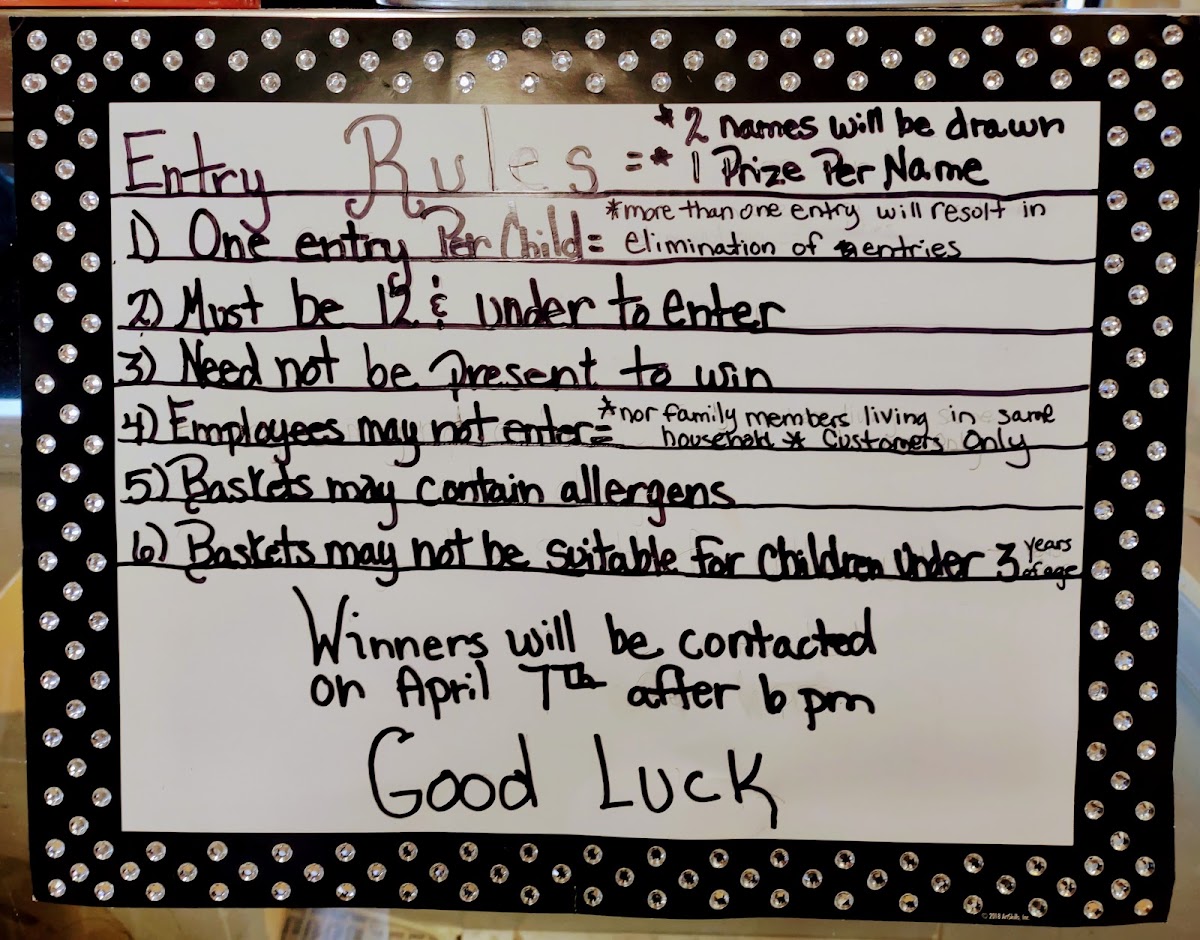 Entry Rules = * 2 names will be drawn
* 1 Prize Per Name
1) One entry Per Child = *more than one entry will resolt in
elimination of entries
2) Must be 12 & under to enter
3) Need not be present to win
4) Employees may not enter = *nor family members living in same
household * Customers Only
5) Baskets may contain allergens
6) Baskets may not be suitable for children under 3 years
of age
Winners will be contacted
on April 7th after 6 pm
Good Luck
© 2018 ArtSkills, Inc.